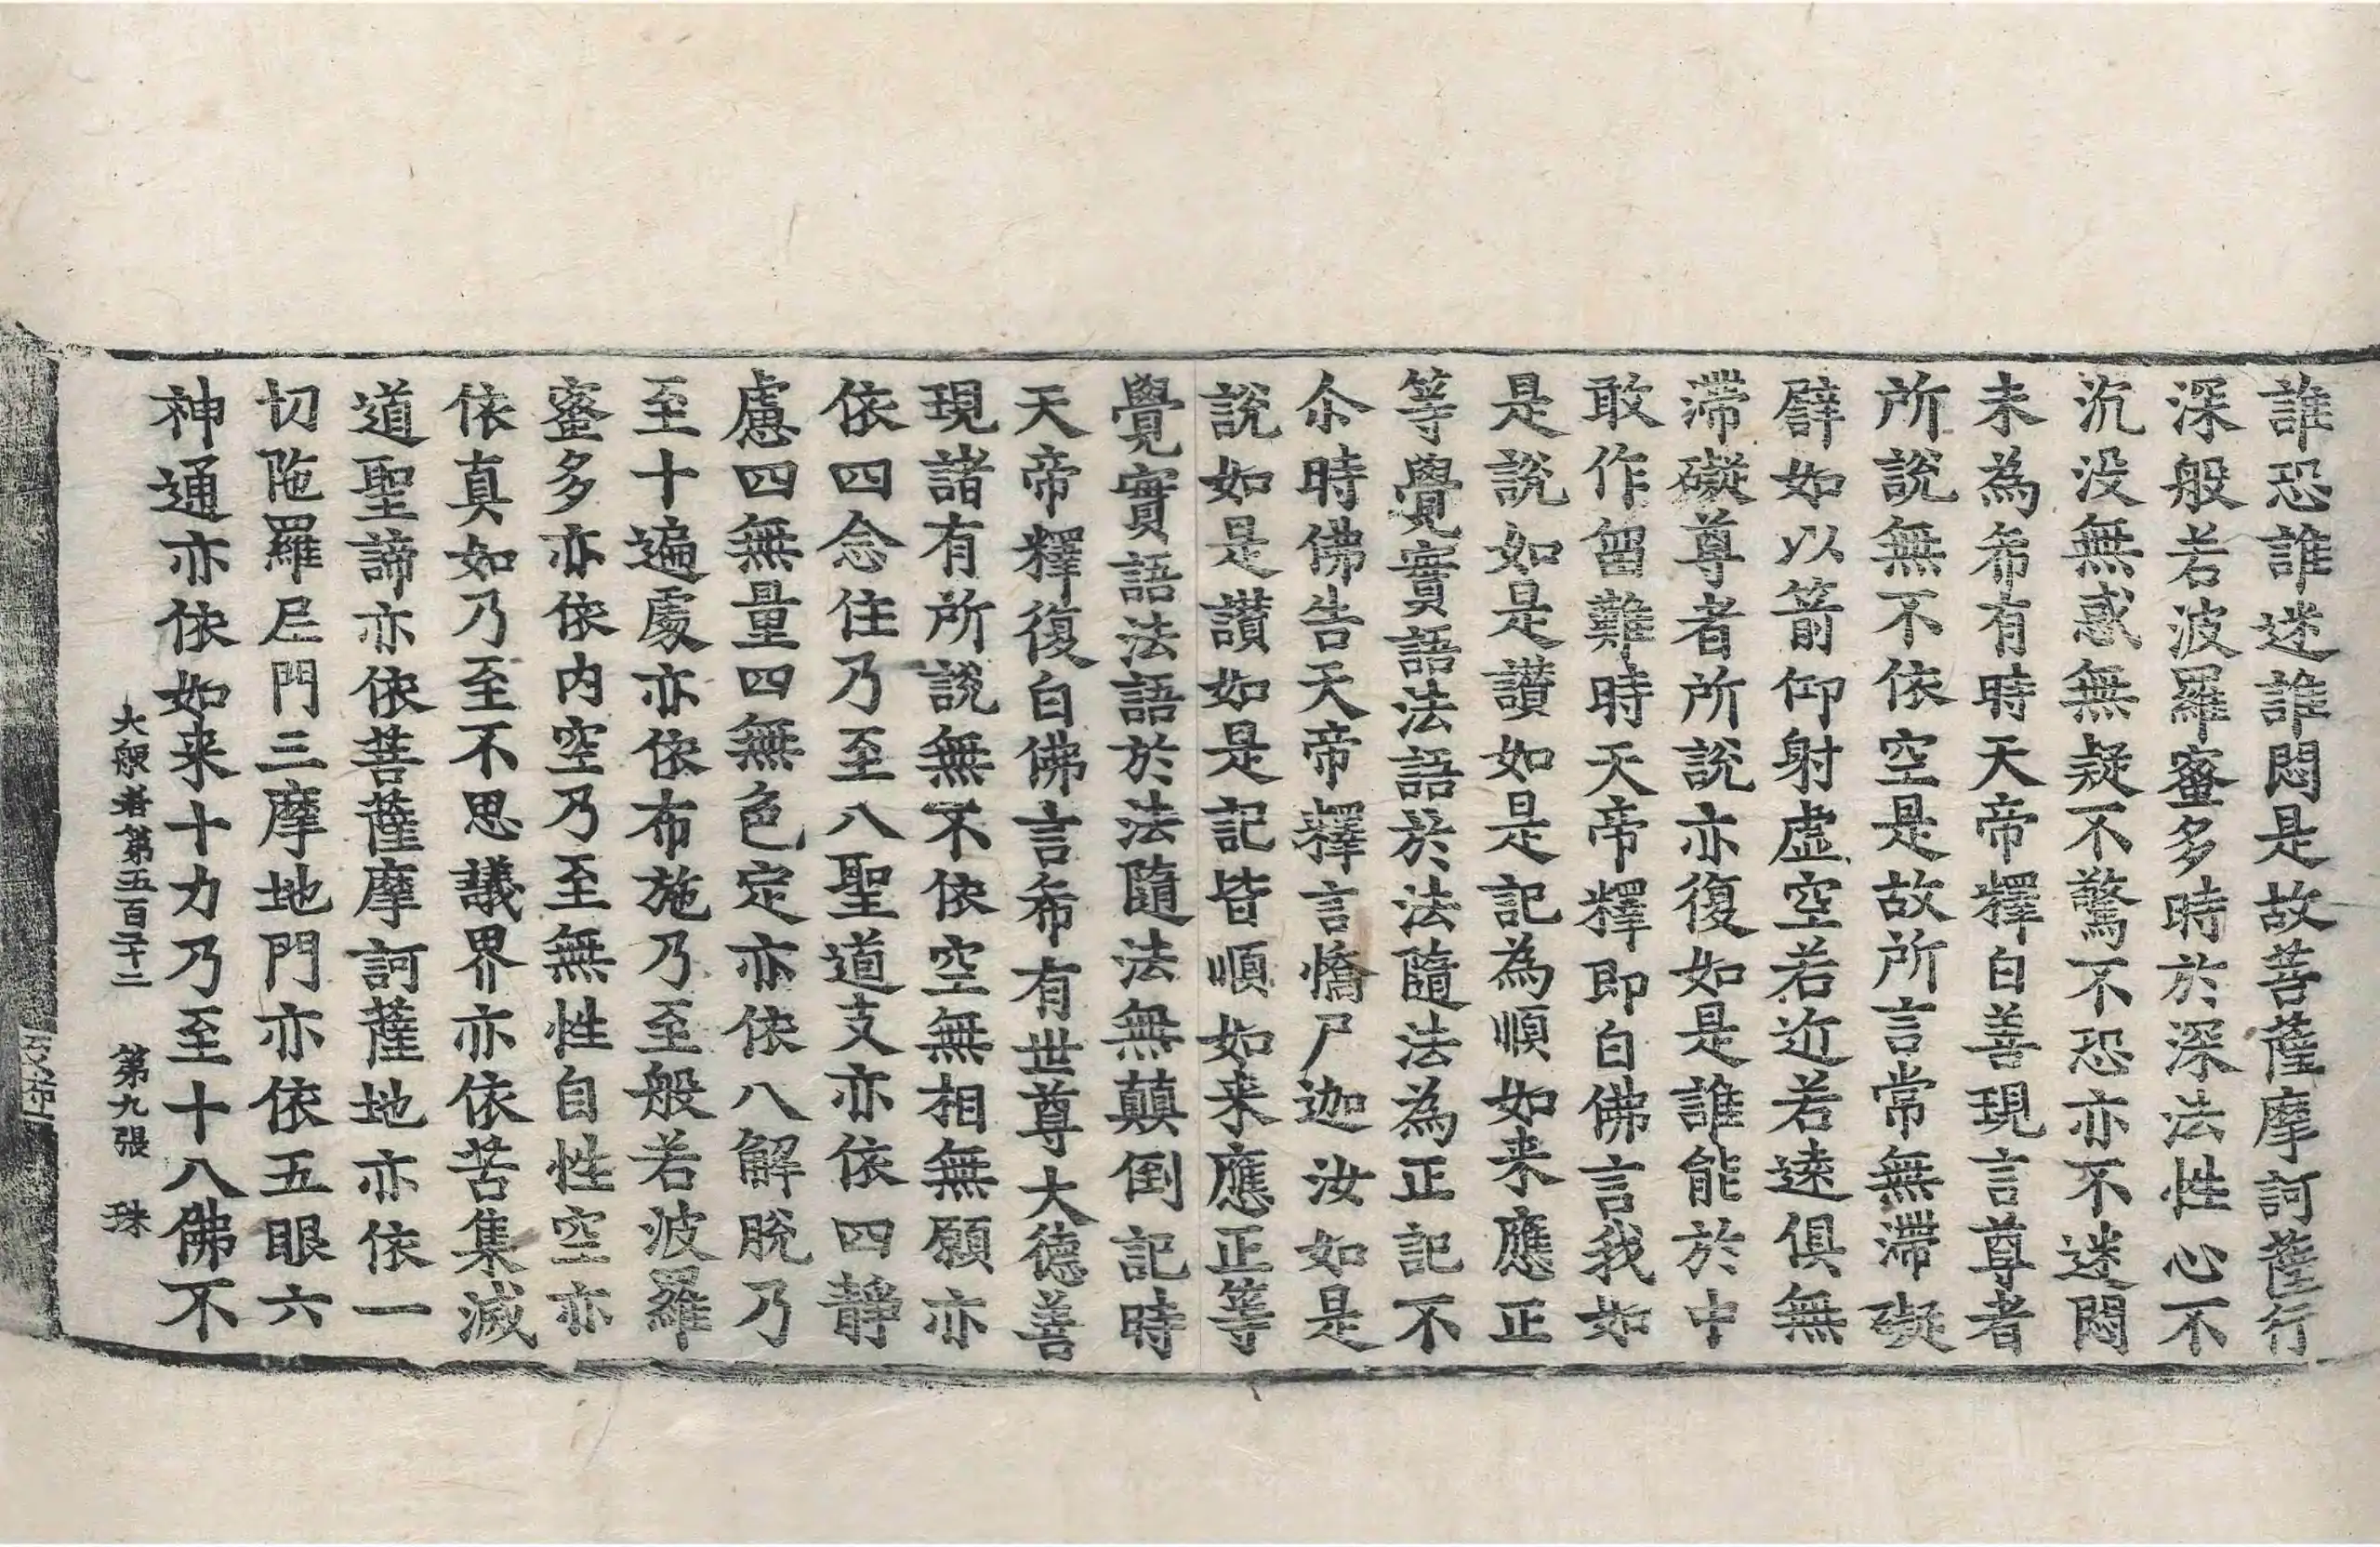 誰恐誰迷誰悶是故菩薩摩訶薩行
深般若波羅蜜多時於深法性心不
沉没無惑無疑不驚不恐亦不迷悶
未為希有時天帝釋白善現言尊者
所說無不依空是故所言常無滯礙
譬如以箭仰射虛空若近若遠俱無
滯礙尊者所說亦復如是誰能於中
敢作留難時天帝釋即白佛言我如
是說如是讚如是記為順如来應正
等覺實語法語於法隨法為正記不
尒時佛告天帝釋言憍尸迦汝如是
說如是讚如是記皆順如来應正等
覺實語法語於法隨法無顛倒記時
天帝釋復白佛言希有世尊大德善
現諸有所說無不依空無相無願亦
依四念住乃至八聖道支亦依四靜
慮四無量四無色定亦依八解脫乃
至十遍處亦依布施乃至般若波羅
蜜多亦依内空乃至無性自性空亦
依真如乃至不思議界亦依苦集滅
道聖諦亦依菩薩摩訶薩地亦依一
切陁羅尼門三摩地門亦依五眼六
神通亦依如来十力乃至十八佛不
大般若第五百二十二　第九張　珠